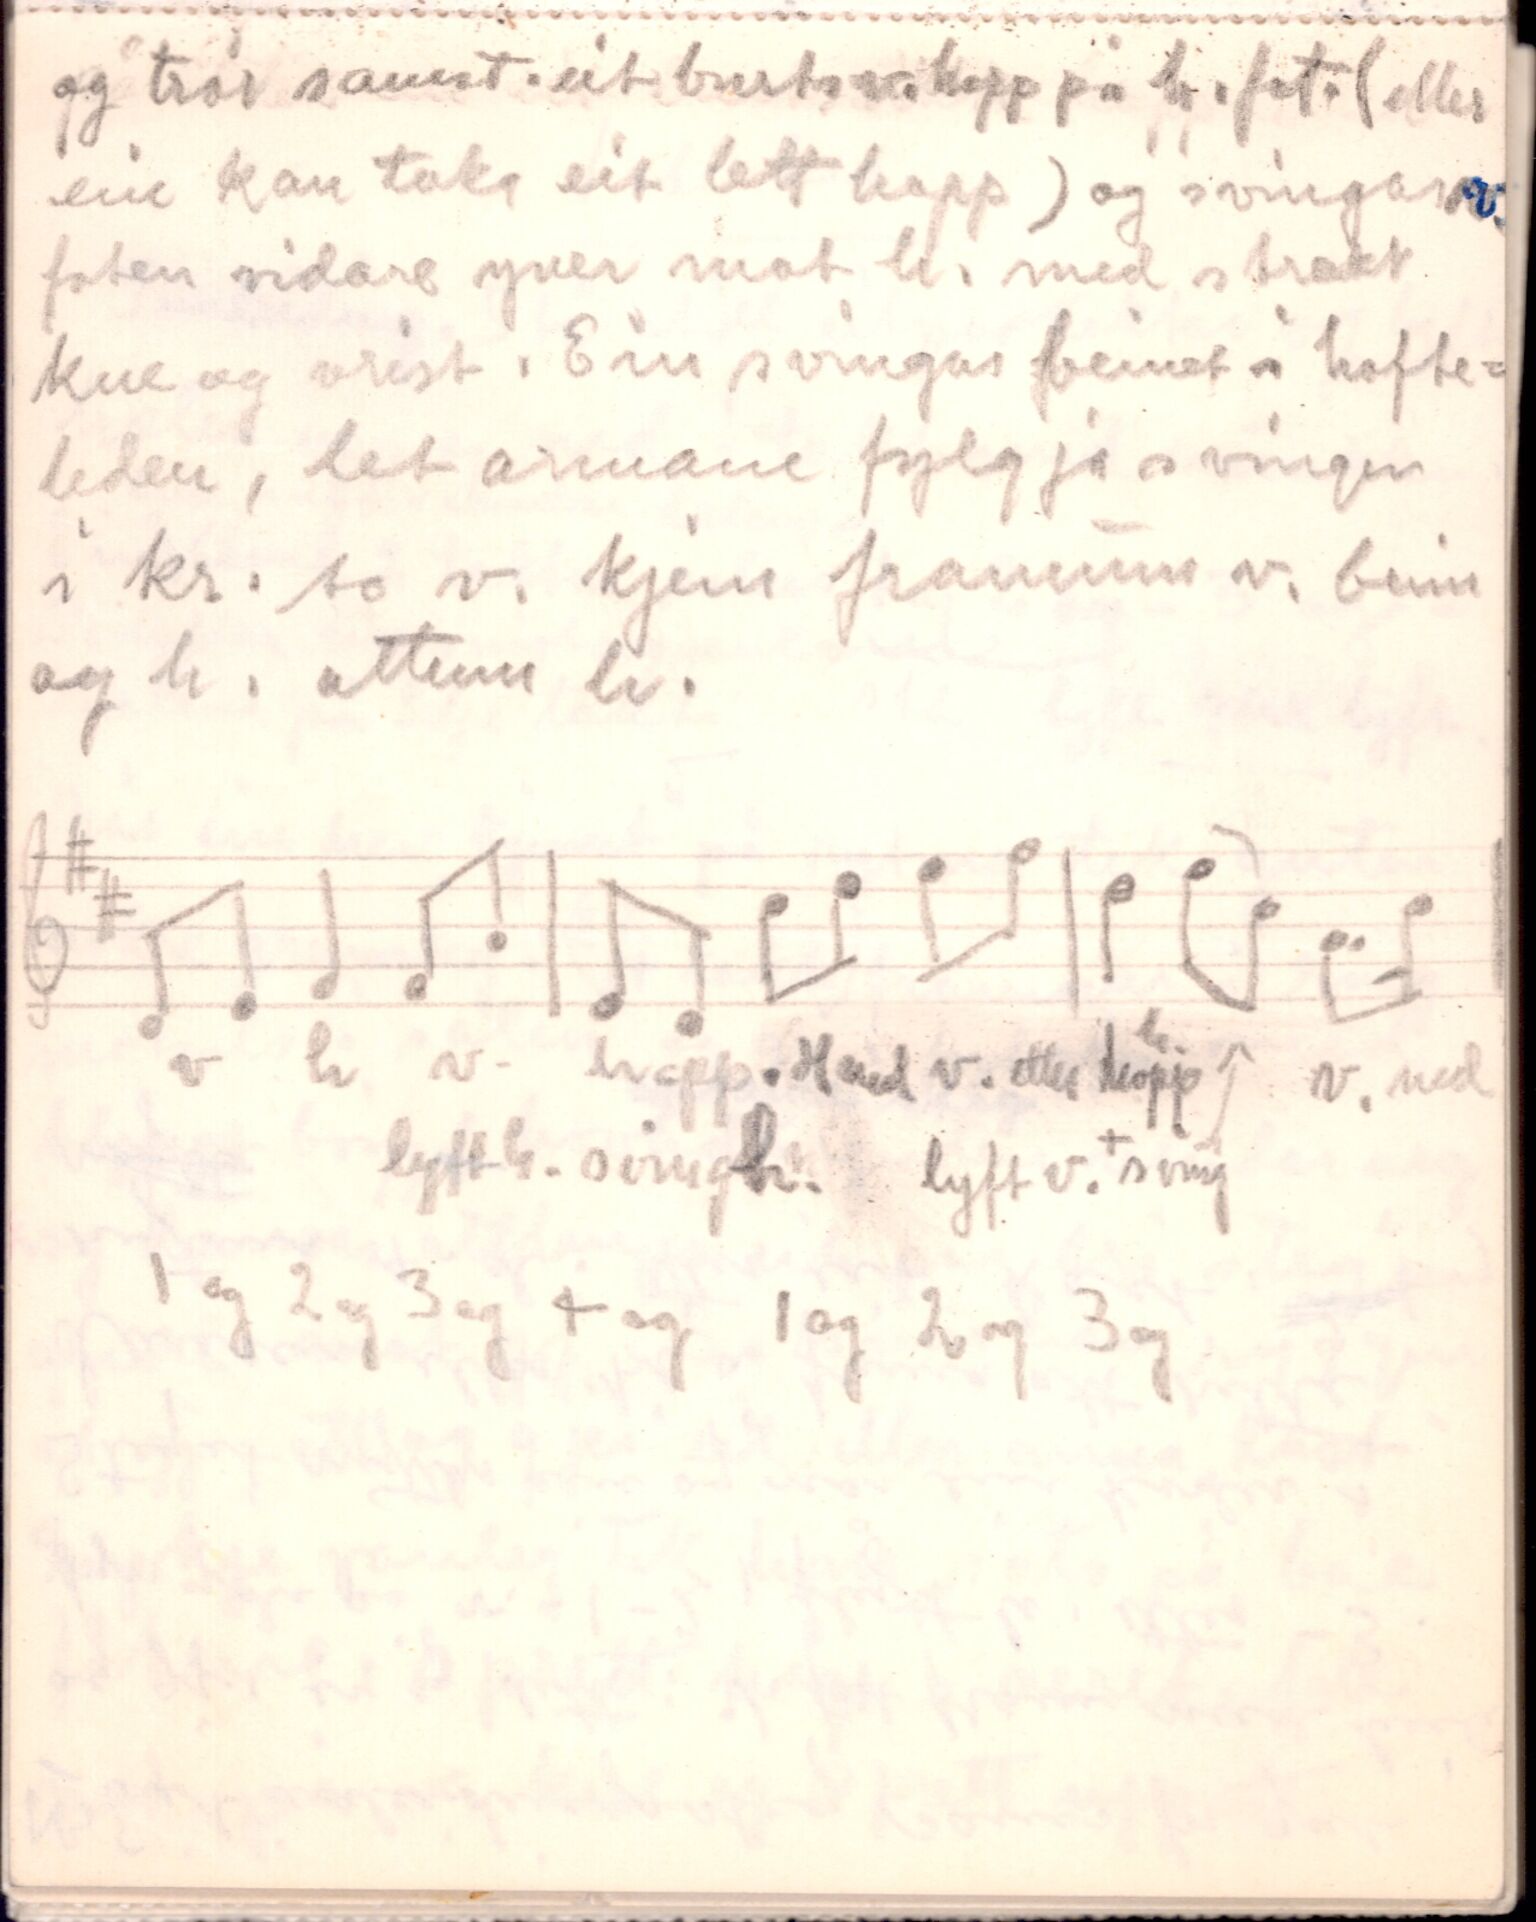 og trør samst. eit burts v. hopp på h. fot. (eller
ein kan taka eit lett hopp) og svingar v.
foten vidare yver mot h. med strakt
kne og vrist. Ein svingar beinet i hofte=
leden, let armane fylgja svingen
i kr. so v. kjem frammum v. bein
og h. attum h.
v h v. hopp. H ned v. eller hopp h. v. ned
lyft h. sving h. lyft v. + sving
1 og 2 og 3 og 4 og 1 og 2 og 3 og